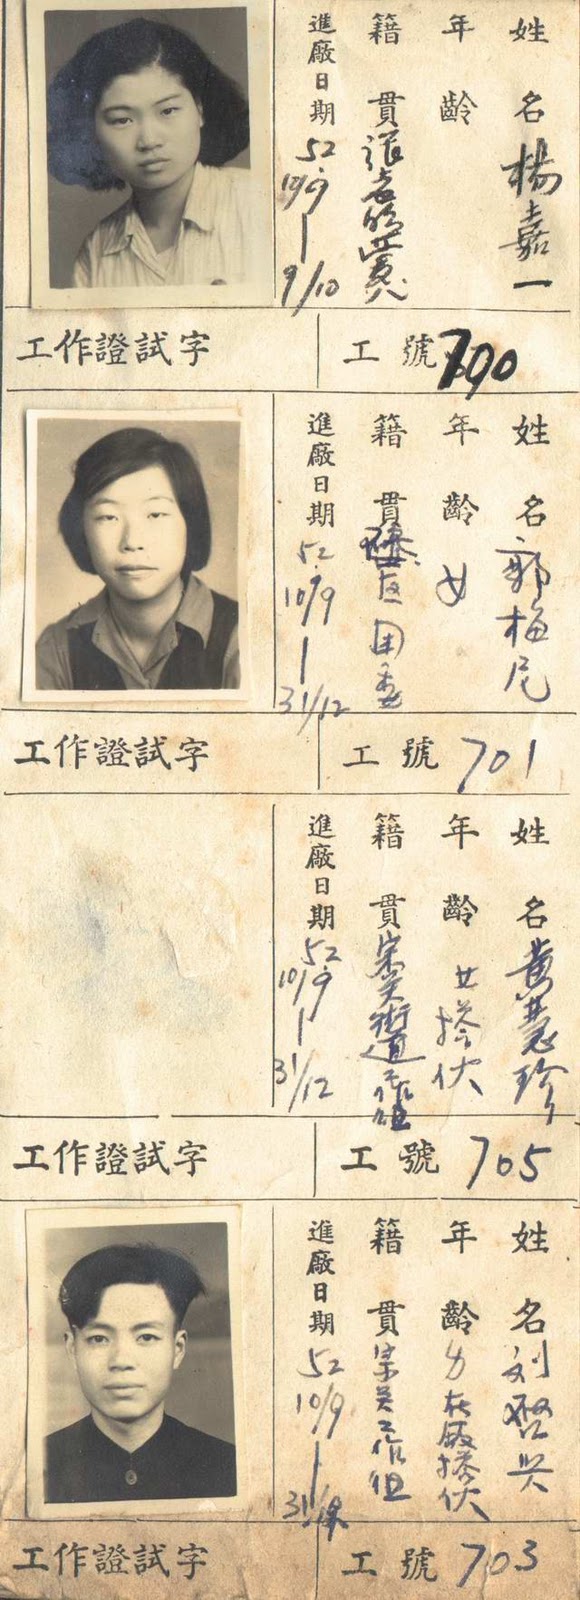 姓名 楊嘉一
年齡
籍貫
進廠日期 52.
10/9
9/10
工作證試字
工號 700
姓名 郭梅尼
年齡 女
籍貫
進廠日期 52.
10/9
31/12
工作證試字
工號 701
姓名 黄慧珍
年齡 女 搭伙
籍貫 宋关街道工作组
進廠日期 52.
10/9
31/12
工作證試字
工號 705
姓名 刘啓兴
年齡 力在飯搭伙
籍貫 宋关工作组
進廠日期 52
10/9
工作證試字
工號 703